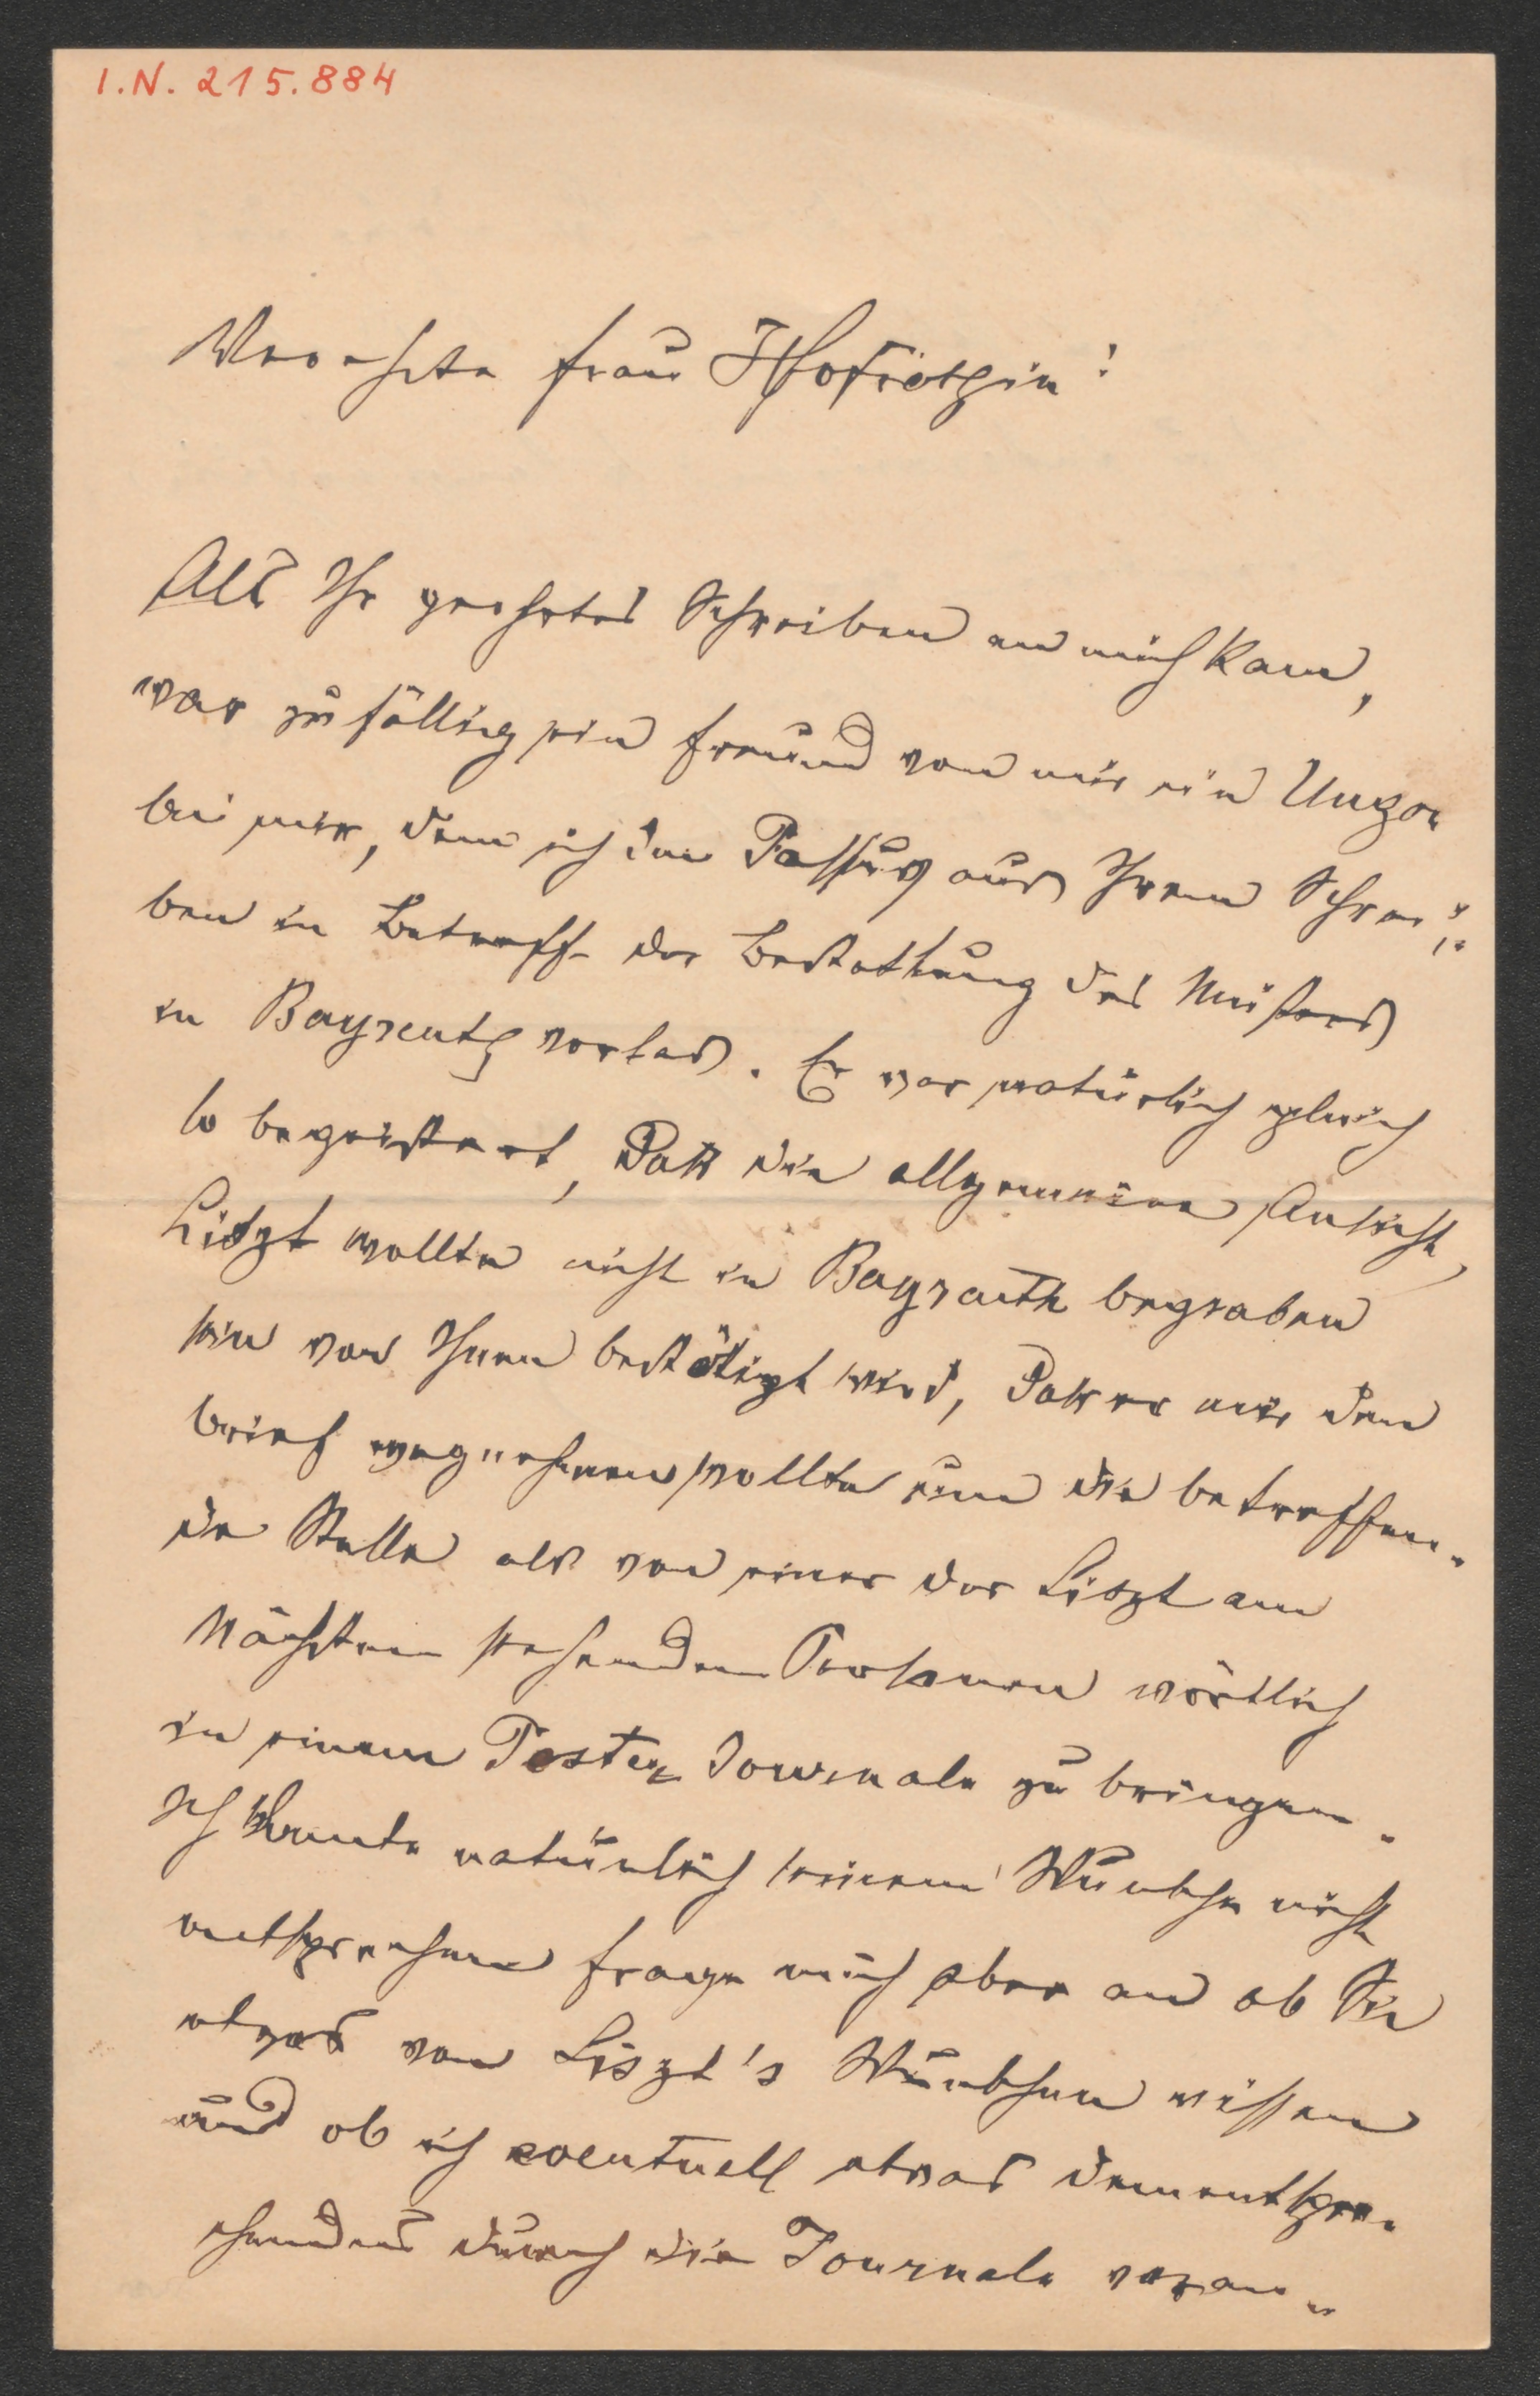 I.N. 215.884
Verehrte Frau Hofräthin!
Als Ihr geehrtes Schreiben an mich kam,
war zufällig ein Freund von mir ein Ungar
bei mir, dem ich den Passus aus Ihrem Schrei-
ben in Betreff der Bestattung des Meisters
in Bayreuth vorlas. Er war natürlich gleich
so begeistert, daß die allgemeine Ansicht,
Liszt wollte nicht in Bayreuth begraben
sein von Ihnen bestätigt wird, daß er mir den
Brief wegnehmen wollte um die betreffen-
de Stelle als von einer der Liszt am
Nächsten stehenden Personen wörtlich
in einem Pester Journale zu bringen.
Ich konnte natürlich seinem Wunsche nicht
entsprechen frage mich aber an ob Sie
etwas von Liszt's Wünschen wissen
und ob ich eventuell etwas dementspre-
chendes durch die Journale veran-